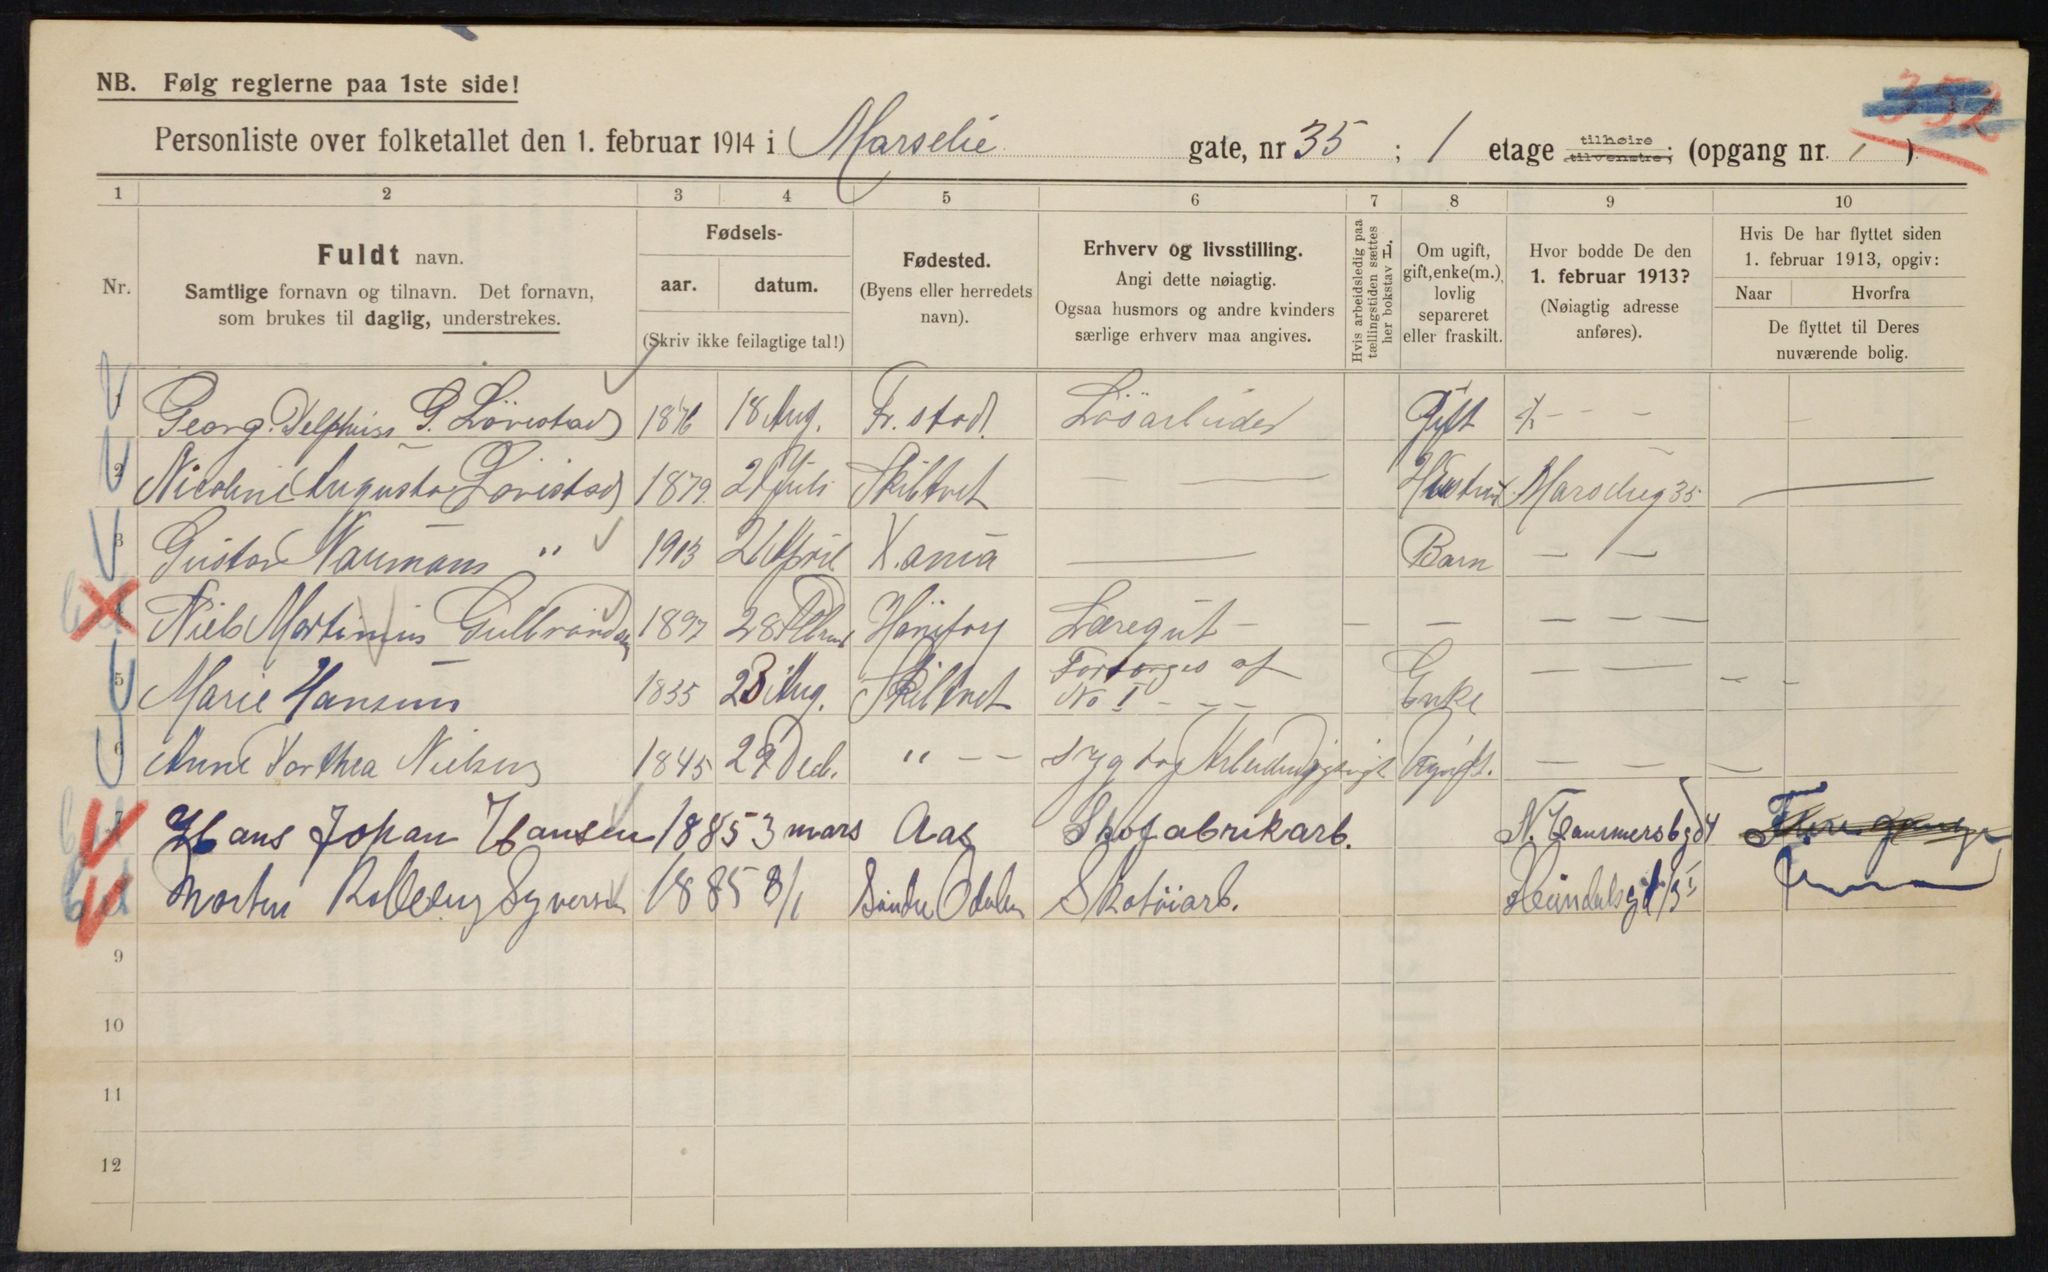 NB. Følg reglerne paa 1ste side!
352
Personliste over folketallet den 1. februar 1914 i Marselie gate, nr 35 ; 1 etage tilhøire tilvenstre; (opgang nr. 1 ).
1 2 3 4 5 6 7 8 9 10
Nr.
Fuldt navn.
Samtlige fornavn og tilnavn. Det fornavn,
som brukes til daglig, understrekes.
Fødsels-
aar. datum.
(Skriv ikke feilagtige tal!)
Fødested.
(Byens eller herredets
navn).
Erhverv og livsstilling.
Angi dette nøiagtig.
Ogsaa husmors og andre kvinders
særlige erhverv maa angives.
Hvis arbeidsledig paa
tællingstiden sættes
her bokstav L.
Om ugift,
gift, enke(m.),
lovlig
separeret
eller fraskilt.
Hvor bodde De den
1. februar 1913?
(Nøiagtig adresse
anføres).
Hvis De har flyttet siden
1. februar 1913, opgiv:
Naar Hvorfra
De flyttet til Deres
nuværende bolig.
1 Georg Delphius G. Lövestad 1876 18 Aug. Fr. stad. Lösarbeider Gift
2 Nicoline Augusta Lövestad 1879. 21 Juli Skibtvet — — Hustru Marselieg 35 —
3 Gustav Narmann " 1913 21 April X.ania — Barn — —
4 Niels Martinius Gulbrandsen 1897 28 Februar Læregut — — — — — —
5 Marie Hansen 1835 23 Aug. Skibtvet Forsørges af No I - - - Enke — — - -
6 Anne Dorthea Nielsen 1845 29 Dec. " - - syg og Ugift. — — — —
7 Hans Johan Hansen 1885 3 mars Aas Skofabrikarb. N. Hammersbgd
8 Morten Syversen 1885 8/1 Söndre Odalen Skotöiarb.
9
10
11
12